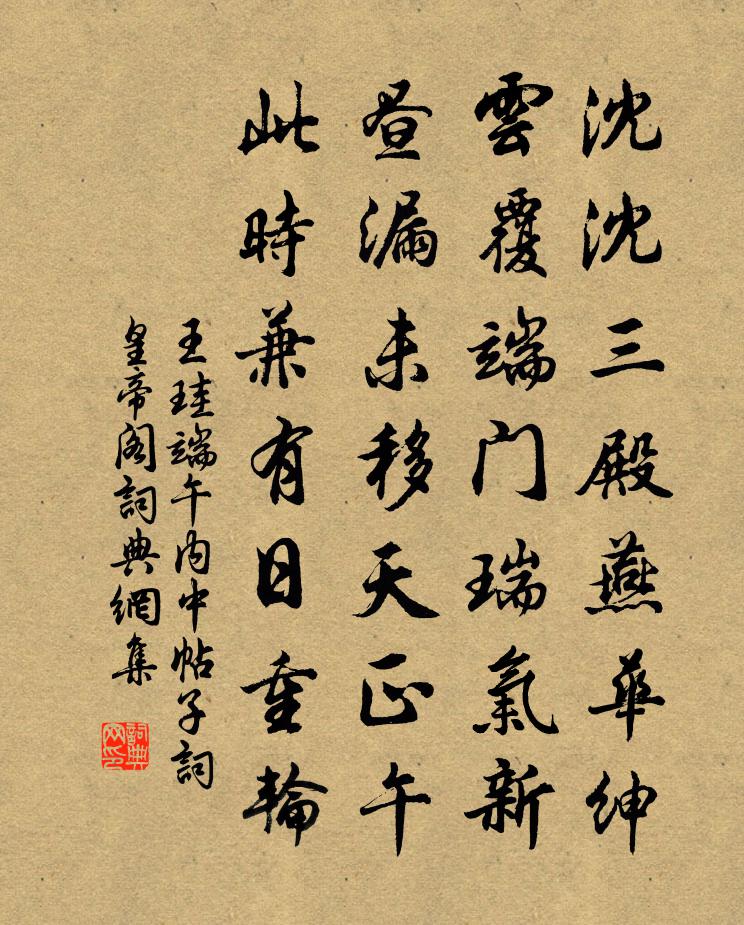 沈沈三殿燕華紳
雲覆端门瑞氣新
晝漏未移天正午
此時兼有日重輪
王珪端午内中帖子詞
皇帝阁詞典網集
詞典网印